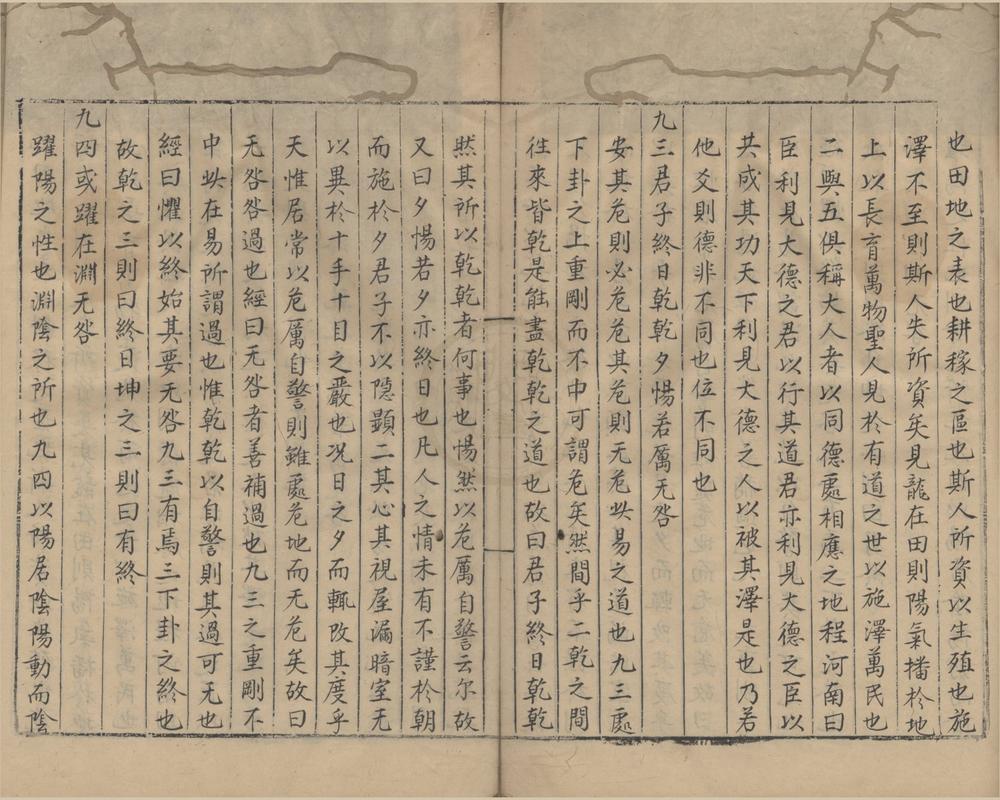 也田地之表也耕稼之區也斯人所資以生殖也施
澤不至則斯人失所資矣見龍在田則陽氣播於地
上以長育萬物聖人見於有道之世以施澤萬民也
二與五俱稱大人者以同德處相應之地程河南曰
臣利見大德之君以行其道君亦利見大德之臣以
共成其功天下利見大德之人以被其澤是也乃若
他爻則德非不同也位不同也
九三君子終日乾乾夕惕若厲无咎
安其危則必危危其危則无危此易之道也九三處
下卦之上重剛而不中可謂危矣然間乎二乾之間
往來皆乾是能盡乾乾之道也故曰君子終日乾乾
然其所以乾乾者何事也惕然以危厲自警云尔故
又曰夕惕若夕亦終日也凡人之情未有不謹於朝
而施於夕君子不以隠顕二其心其視屋漏暗室无
以異於十手十目之嚴也况日之夕而輒改其度乎
天惟居常以危厲自警則雖處危地而无危矣故曰
无咎咎過也經曰无咎者善補過也九三之重剛不
中此在易所謂過也惟乾乾以自警則其過可无也
經曰懼以終始其要无咎九三有焉三下卦之終也
故乾之三則曰終日坤之三則曰有終
九四或躍在淵无咎
躍陽之性也淵陰之所也九四以陽居陰陽動而陰